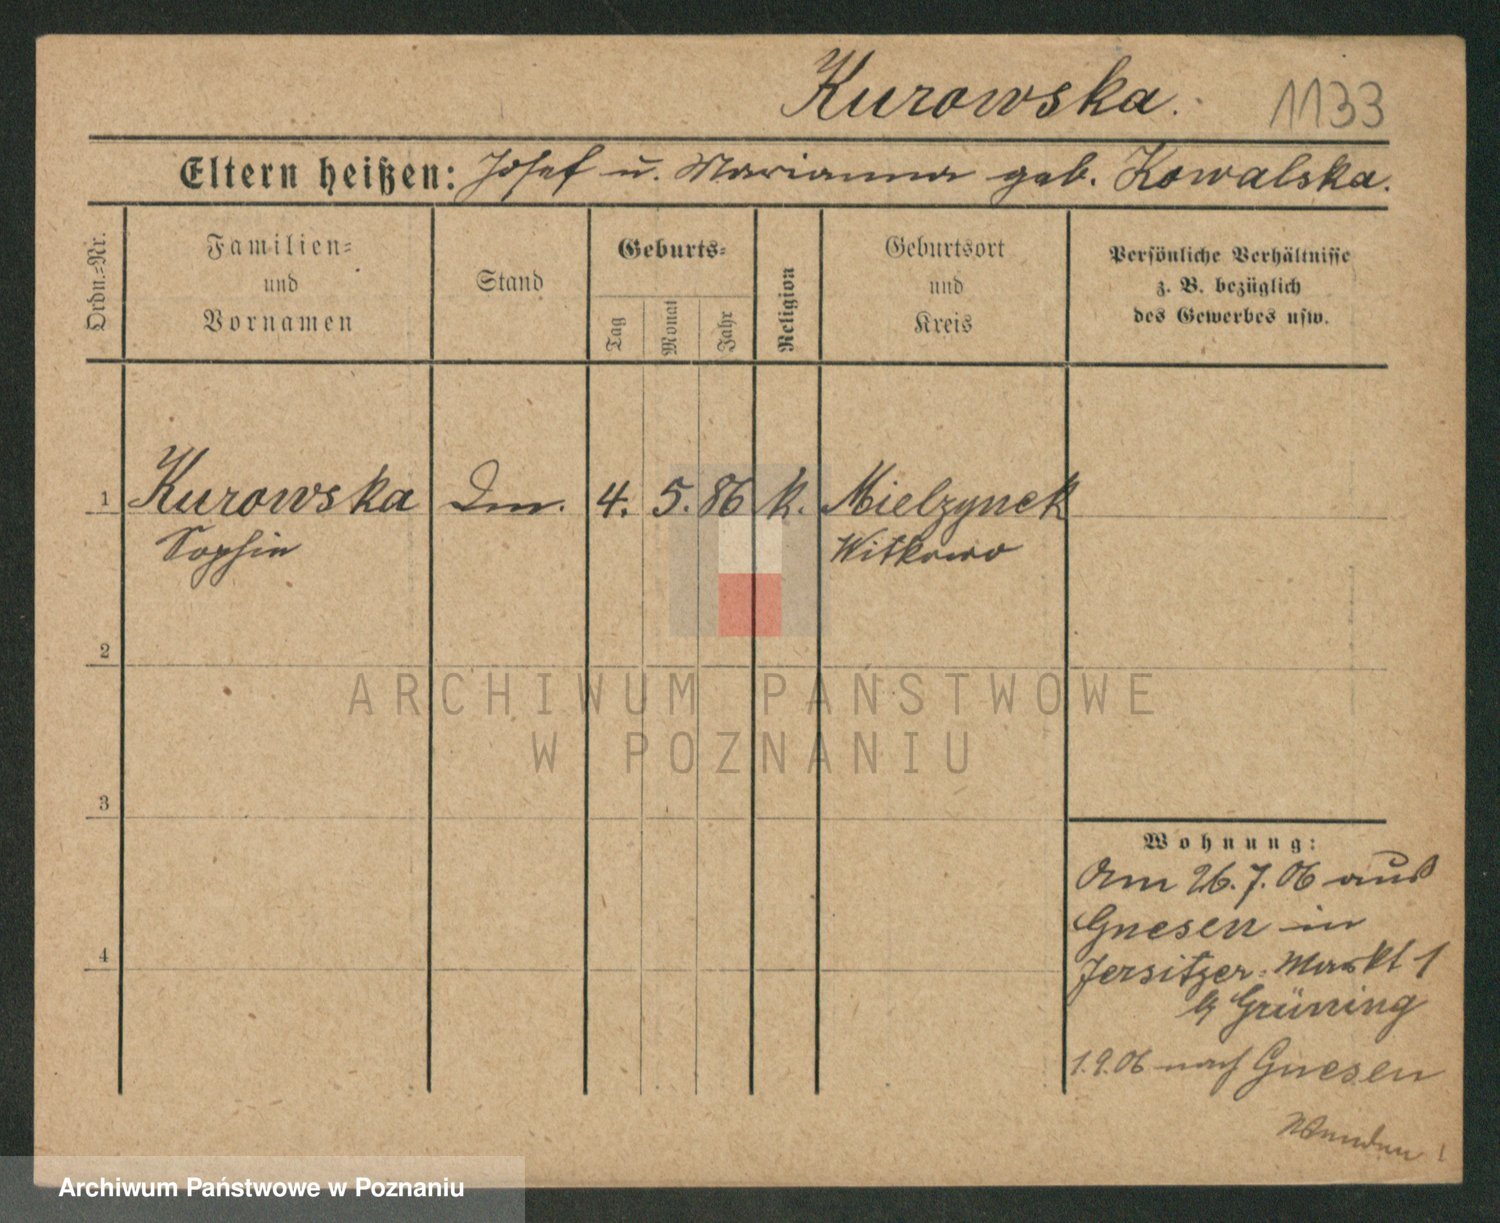 Kurowska. 1133
Eltern heißen: Josef u. Marianna geb. Kowalska.
Ordn.=Nr.
Familien=
und
Vornamen
Stand
Geburts=
Tag
Monat
Jahr
Religion
Geburtsort
und
Kreis
Persönliche Verhältnisse
z. B. bezüglich
des Gewerbes usw.
1 Kurowska 4. 5. 86 k. Mielzynek
Sophie Witkowo
2
3
4
Wohnung:
Am 26.7.06 aus
Gnesen in
Jersitzer-Markt 1
b Grüning
1.9.06 nach Gnesen
Wenden!
ARCHIWUM PAŃSTWOWE
W POZNANIU
Archiwum Państwowe w Poznaniu